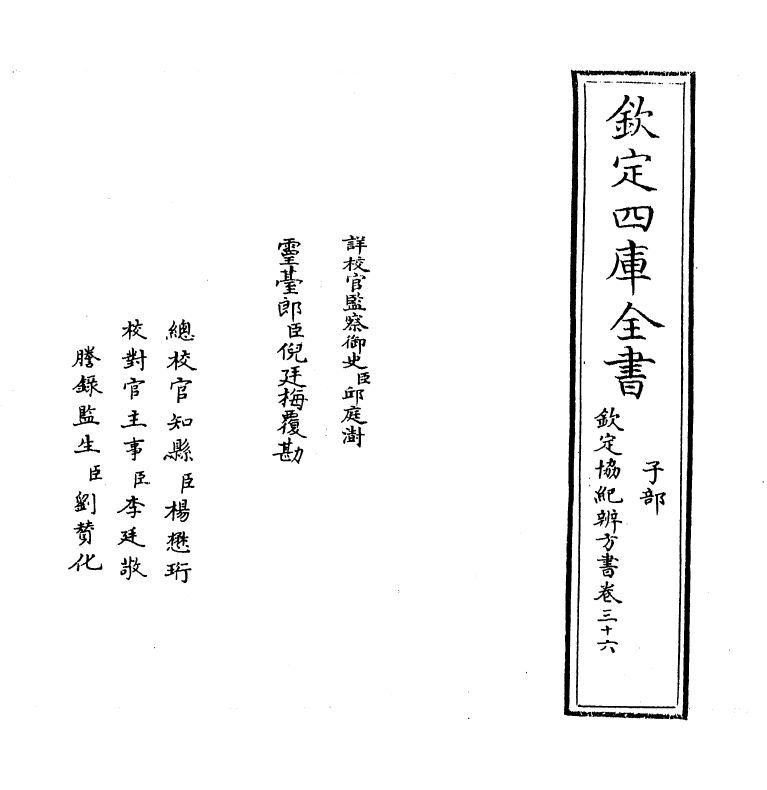 欽定四庫全書
子部
欽定協紀辨方書卷三十六
詳校官監察御史臣邱庭澍
靈臺郎臣倪廷梅覆勘
總校官知縣臣楊懋珩
校對官主事臣李廷敬
謄錄監生臣劉贊化